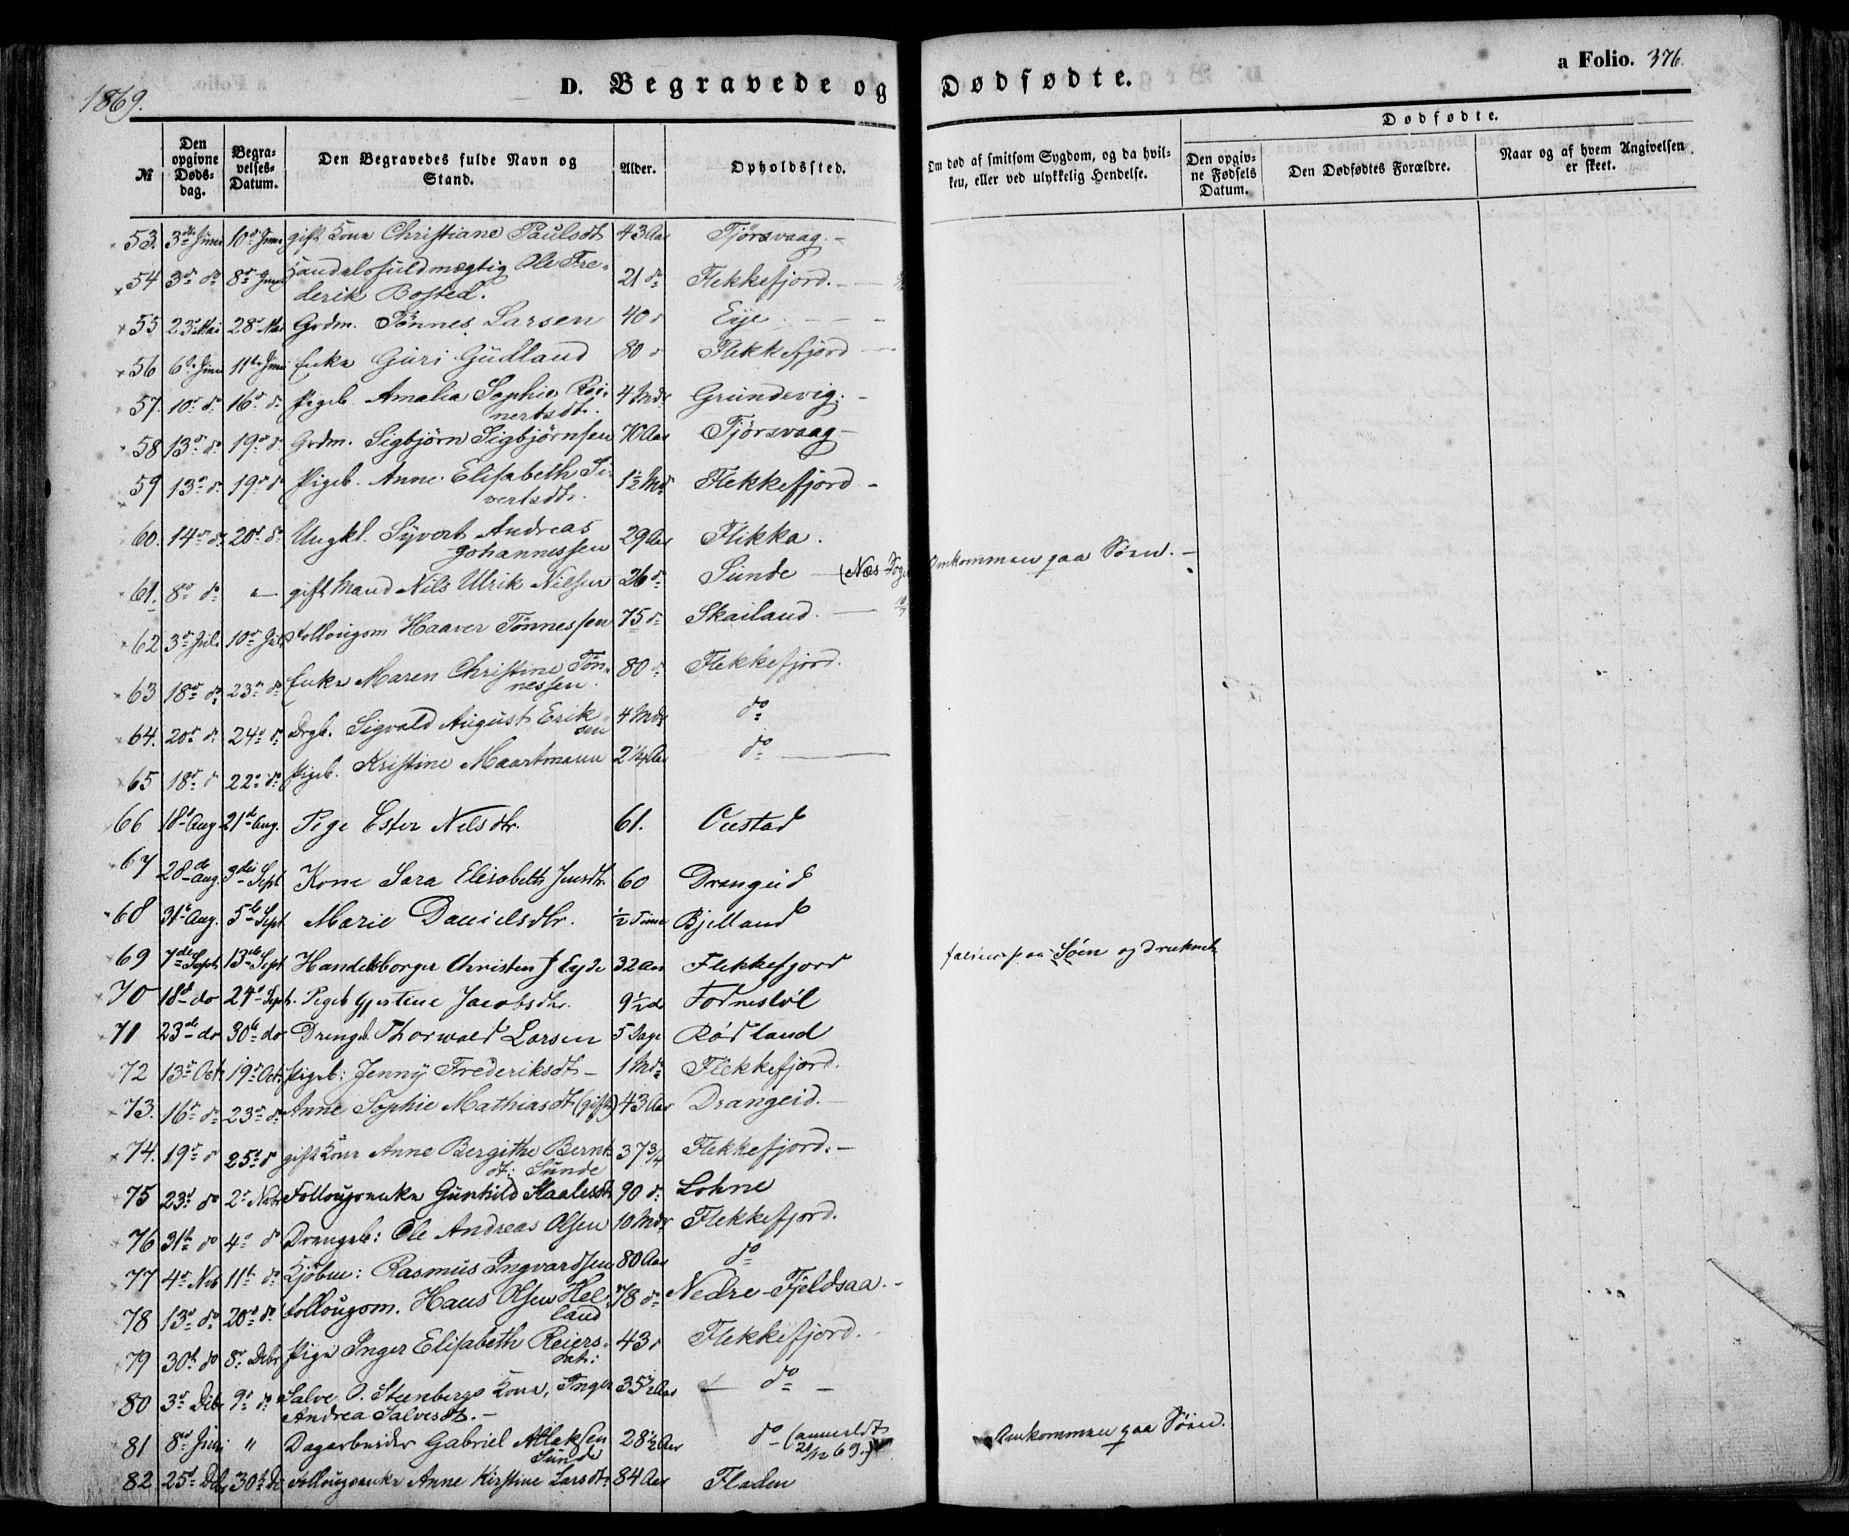 1869.
D. Begravede og Dødfødte.
a Folio. 376.
Dødfødte.
№
Den opgivne Døds-dag.
Begra-velses-Datum.
Den Begravedes fulde Navn og Stand.
Alder.
Opholdssted.
Om død af smitsom Sygdom, og da hvil-ken, eller ved ulykkelig Hendelse.
Den opgiv-ne Fødsels Datum.
Den Dødfødtes Forældre.
Naar og af hvem Angivelsen er skeet.
53. 3die Juni 10de Juni gift Kone Christiane Paulsdt. 43 Aar Tjørsvaag. –
54 3de do 8de Juni Handelsfuldmægtig Ole Fre-
derik Bosted. 21 do Flekkefjord. –
55 23de Mai 28de Mai Grdm. Tønnes Larsen 40 d Eye –
56 6te Juni 11te Juni Enke Guri Gudland 80 d Flekkefjord –
57. 10de do 16de do Pigeb. Amalia Sophie Rei-
nertsdt. 4 Mdr Grundevig. –
58 13de do 19de do Grdm. Sigbjørn Sigbjørnsen 70 Aar Tjørsvaag –
59 13de do 19de do Pigeb. Anne Elisabeth Si-
vertsdt. 1½ Md Flekkefjord –
60. 14de do 20de do Ungkl. Syvert Andreas
Johannessen 29 Aar Flikka.
61. 8de do " gift Mand Nils Ulrik Nilsen 26 do Sunde – (Næs Omkommen paa Søen. –
62 3de Juli 10de Juli Follougsm Haaver Tønnessen 75 do Skailand. –
63 18de do 23de do Enke Maren Christine Tøn-
nessen. 80 d Flekkefjord.
64. 20de do 24de do Drgb. Sigvald August Erik-
sen 4 Mdr do
65 18de d 22de do Pigeb. Kristine Maartmann 2½ Aar do –
66 18de Aug 21de Aug. Pige Ester Nilsdtr. 61. Oustad
67 28de Aug. 3die Sept Kone Sara Elisabeth Jensdtr. 60 Drangeid
68 31te Aug. 5te Sept Marie Danielsdtr. ½ Time Bjelland
69 7de Sept 13de Sept Handelsborger Christen J Eyde 32 Aar Flekkefjord falden paa Søen og druknet
70 18de do 24de Sept. Pigeb Gjertine Jacobsdtr. 9½ do Fornestøl
71 23de do 30te do Drengeb. Thorwald Larsen 5 Dage Rødland
72 13de Oct. 19de Oct. Pigeb: Jenny Frederiksdt – 1 Md Flekkefjord.
73. 16de do 23de do Anne Sophie Mathiasdt. (gift) 43 Aar Drangeid. –
74. 19de d 25de d gift Kone Anne Bergithe Bernt-
dt: Sunde 37¾ Flekkefjord. –
75 23de do 2de Nobr Follougsenke Gunhild Staalesdt 90 d Lohne
76 31te do 4de do Drengeb: Ole Andreas Olsen 10 Mdr Flekkefjord.
77 4de Nob 11te do Kjøbm: Rasmus Ingvardsen 80 Aar do
78 13de do 20de do Follougsm. Hans Olsen Hel-
land 78 do Nedre-Fjeldsaa. –
79 30te do 8de Debr Pige Inger Elisabeth Reiers-
dat: 43 d Flekkefjord.
80 3de Debr 9de do Salve O. Steenbergs Kone, Inger
Andrea Salvesdt. – 35½ Aar – do –
81 8de Juni " Dagarbeider Gabriel Atlaksen
Sunde 28½ Aar do (anmeldt
21/12 69.) Omkommen paa Søen.
82 25de Dbr 30te Db Follougsenke Anne Kirstine Larsdt: 84 Aar Fladen